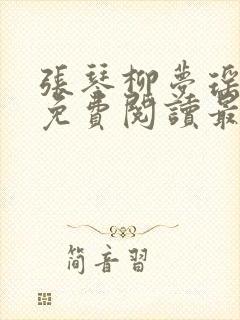 張琴柳夢瑤
免費閱讀最
简音習